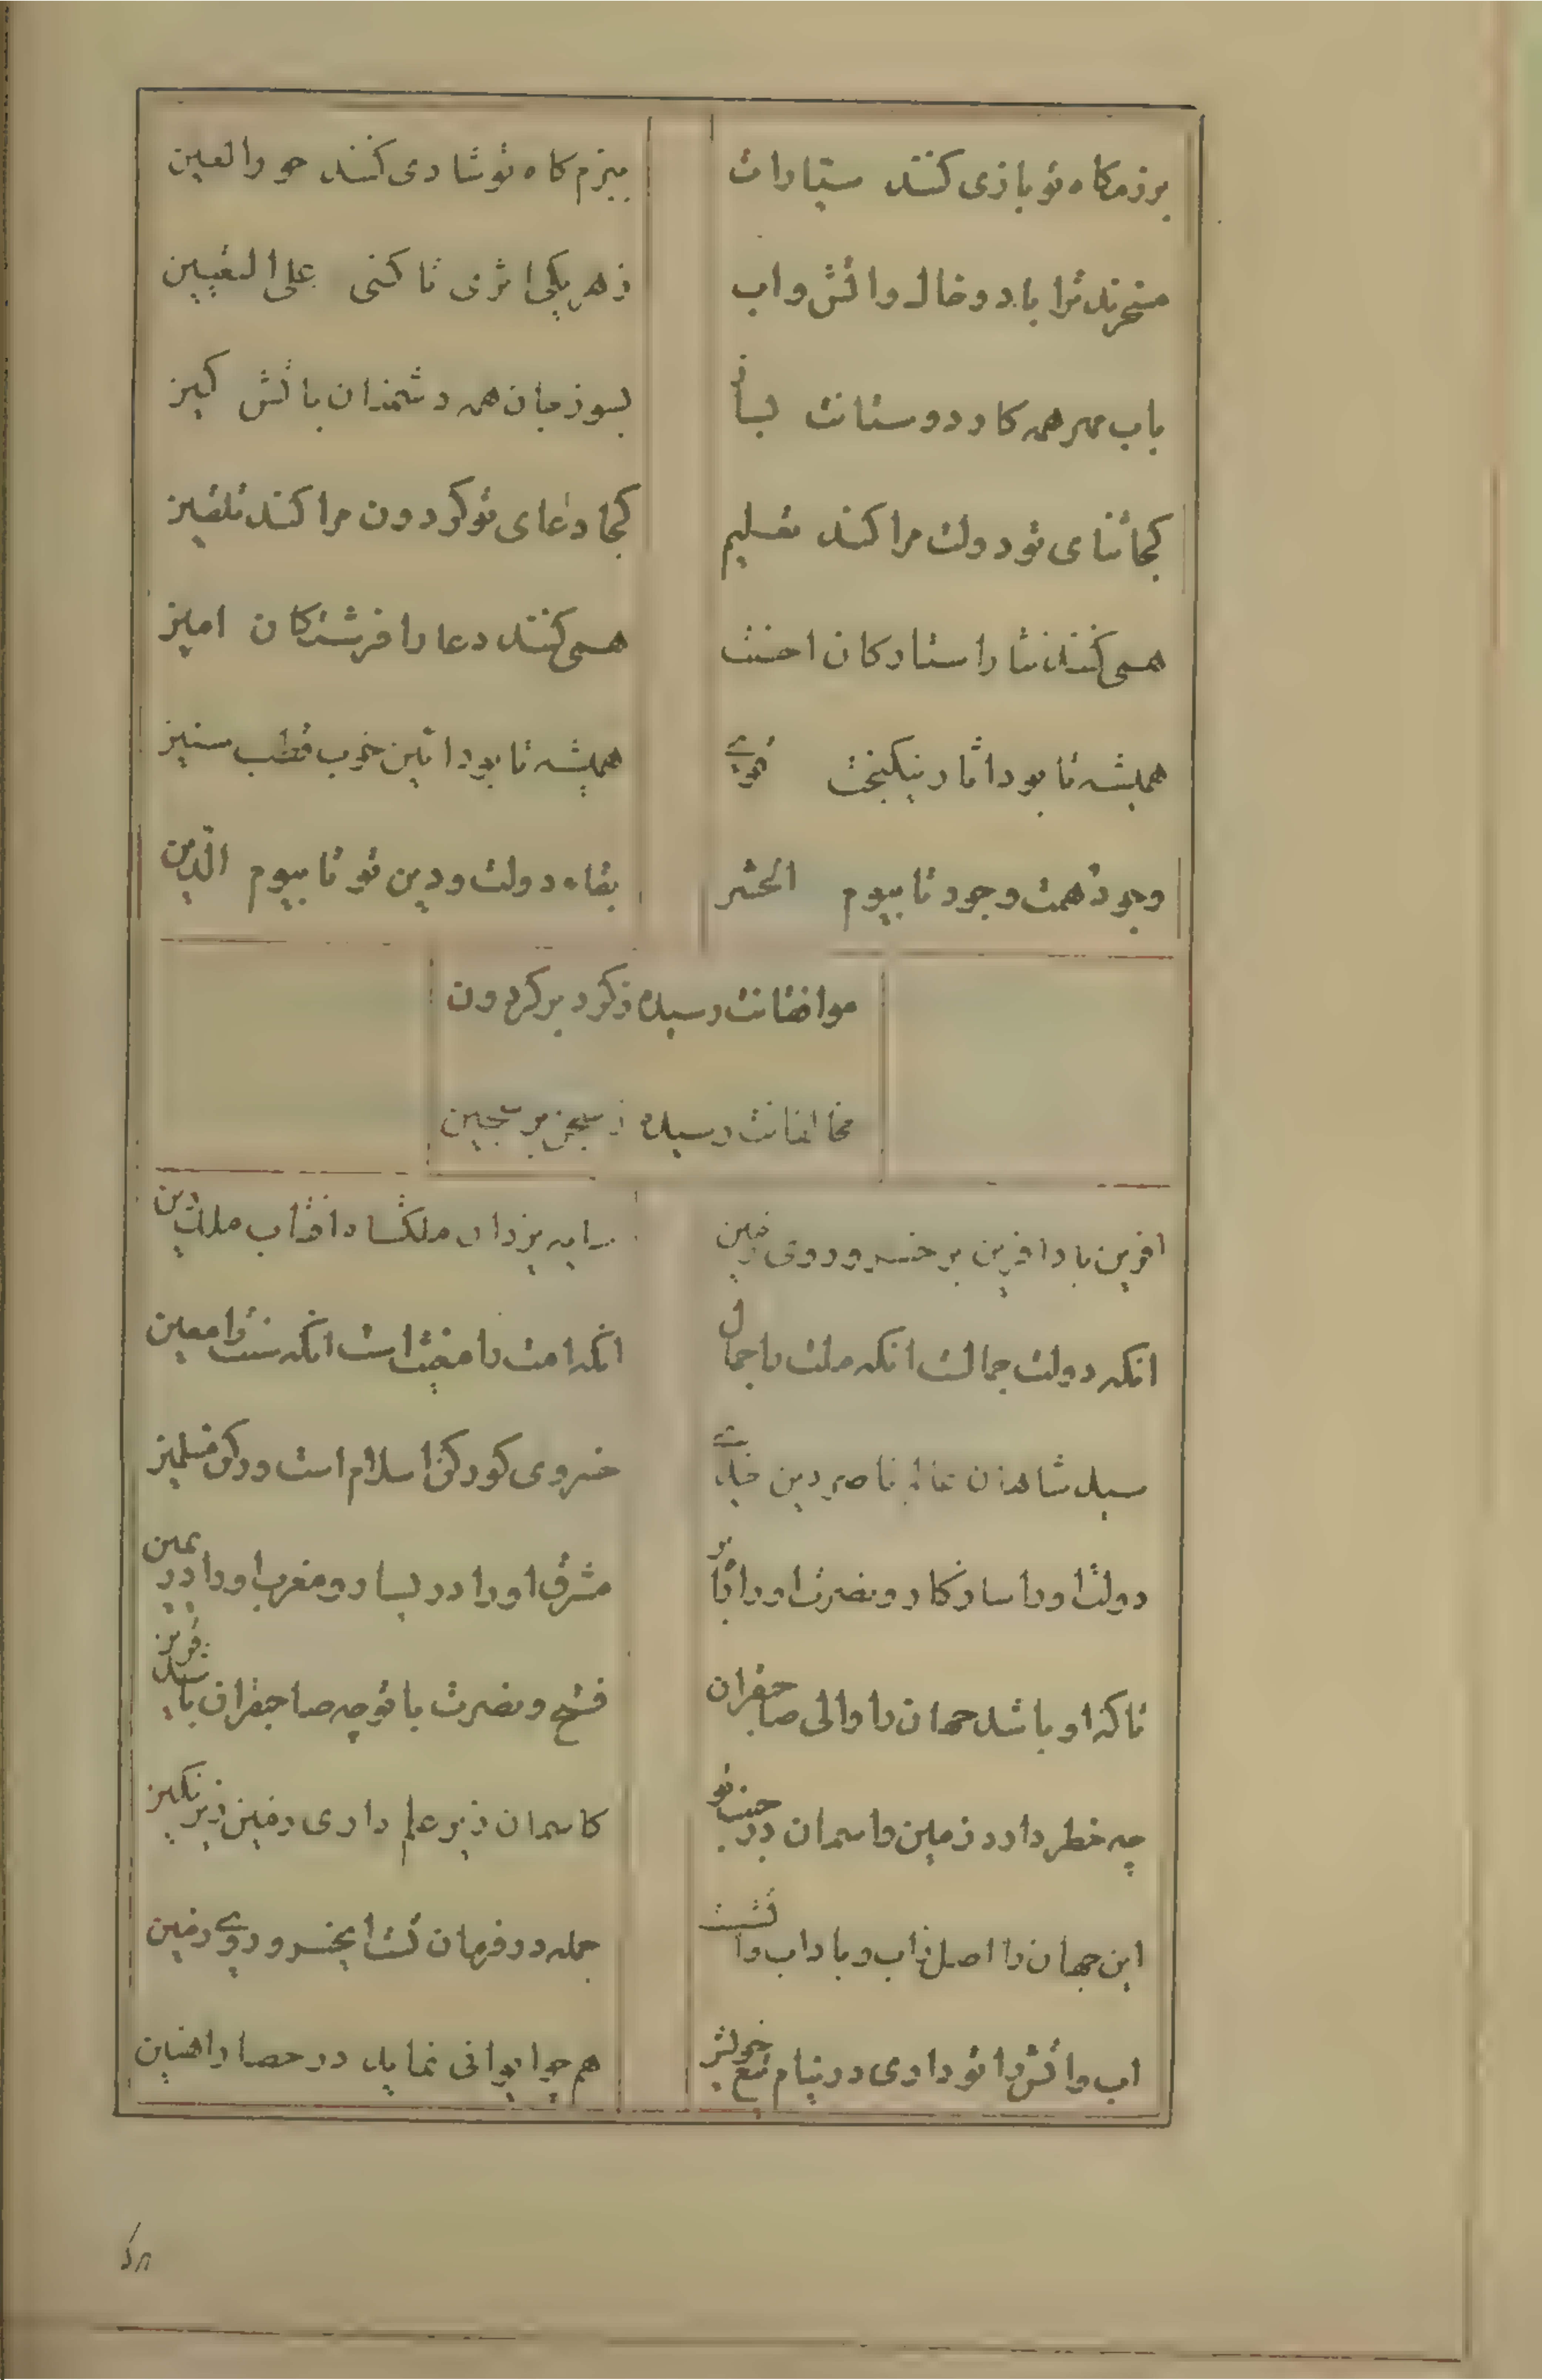 برزمکاه تو بازی کنند ستارات
ببزم کاه تو شادی کنند حورالعین
مسخرند ترا باد و خاک و اتش و اب
ز هر یکی اثری تا کنی علی التعیین
باب مهر همه کار دوستانت بساز
بسوز جان همه دشمنان باتش کین
کجا ثنای تو دولت مرا کند تعلیم
کجا دعای تو کردون مرا کند تلقین
همی کنند ثنا را ستارکان احسنت
همی کنند دعا را فرشتکان امین
همیشه تا بود اثار نیکبخت
همیشه تا بود ائین خوب قطب
وجود همت وجود تا بیوم الحشر
بقاء دولت و دین تو تا بیوم الدین
موافقانت رسیده ز کرد بر کردون
مخالفانت رسیده ز سجن بر سجین
افرین باد افرین بر خسرو روی زمین
سایه یزدان ملکشاه افتاب ملک دین
انکه دولت جمالست انکه ملت را جمال
انکه امت را مغیث است انکه سنت را معین
سید شاهان عالم ناصر دین
خسروی کو رکن اسلام است و رکن مسلمین
دولت او را سازکار و نصرت او را
مشرق او را در یسار و مغرب او را در یمین
تا که او باشد جهان را والی صاحبقران
فتح و نصرت با توجه صاحبقران باشد قرین
چه خطر دارد زمین و اسمان در جنب تو
کاسمان زیر علم داری زمین زیر نکین
این جهان را اصل خاب و باد اب و اتشست
جمله در فرمان تست ایخسرو روی زمین
اب و اتش را تو داری در نیام تیغ خویش
هم جوا یوانی نماید در حصار اهنین